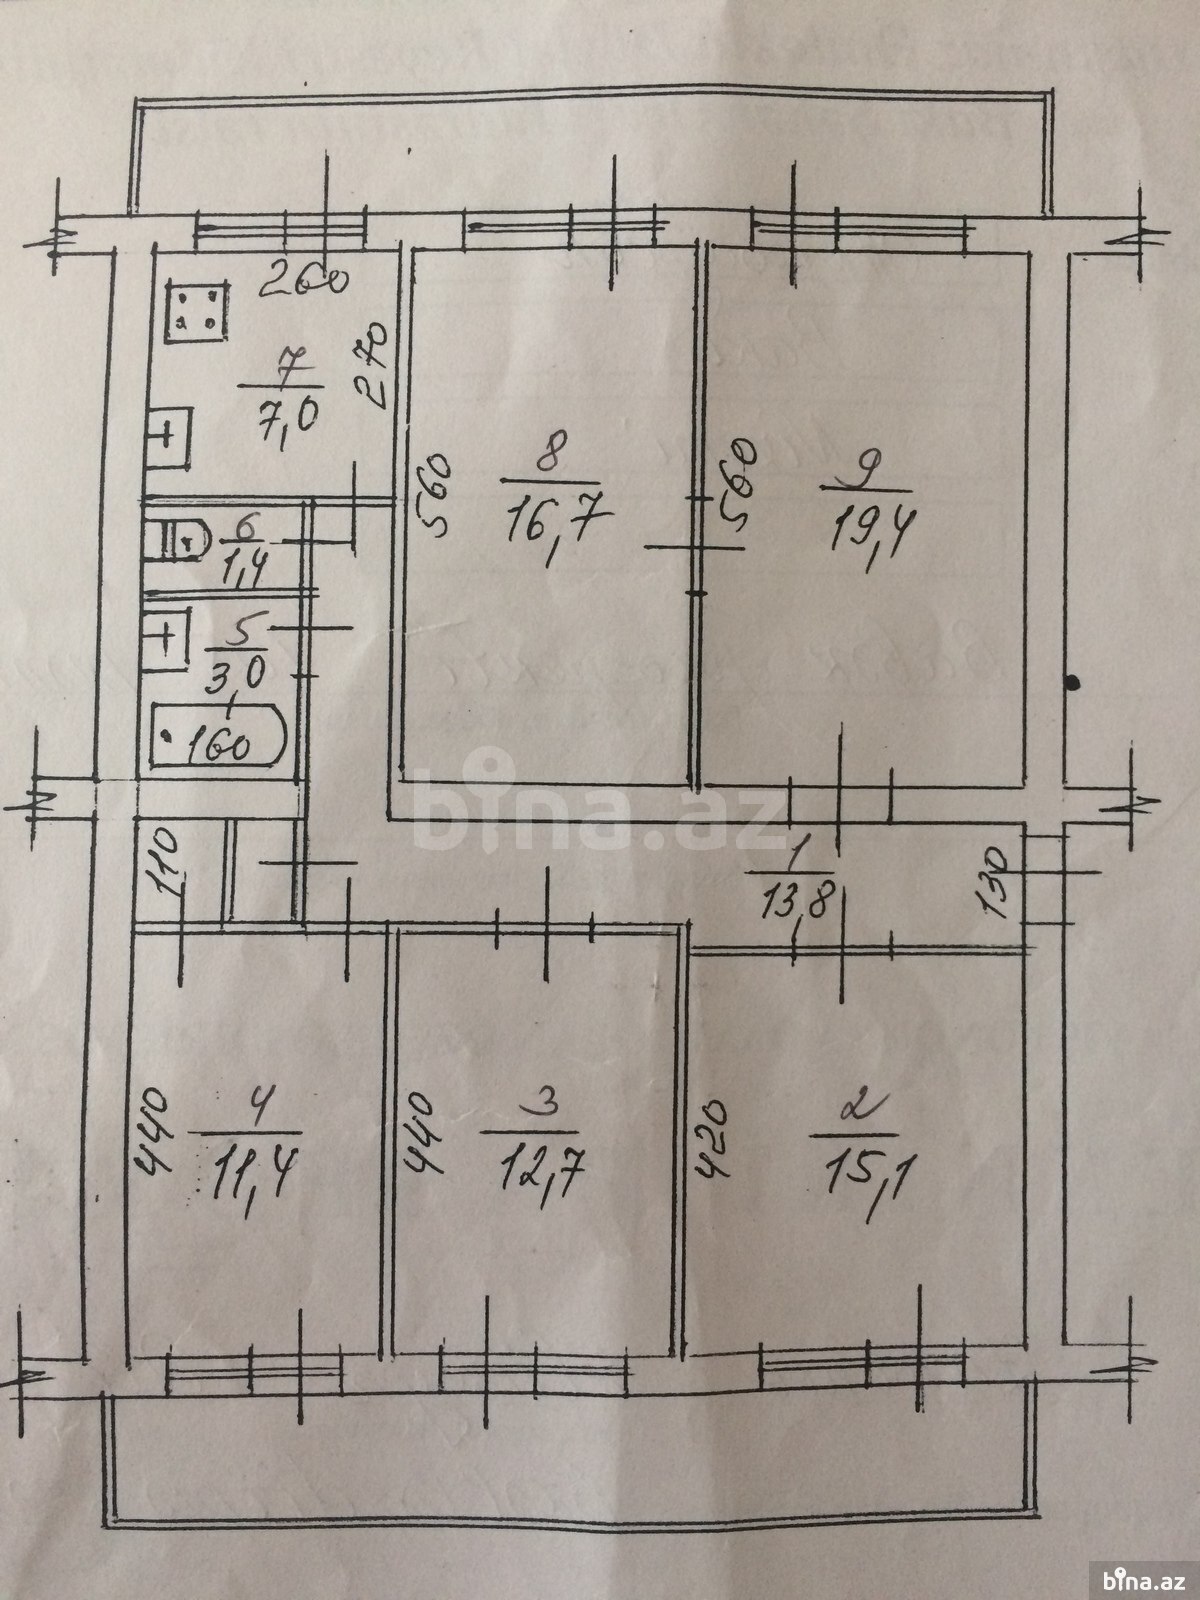 260
270
7
7,0
560
8
16,7
560
9
19,4
6
1,4
5
3,0
160
bina.az
110
1
13,8
130
440
4
11,4
440
3
12,7
420
2
15,1
bina.az